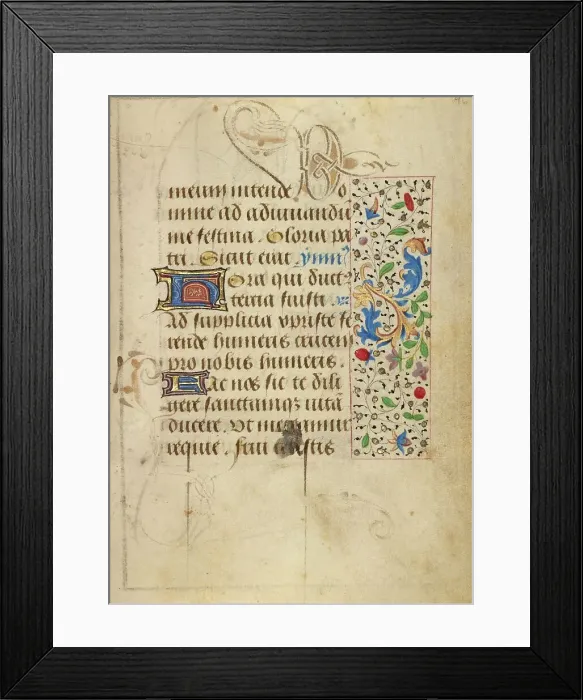 meum intende Do
mine ad adiuuandū
me festina . Gloria pa
tri . Sicut erat ymn⁹
Hora qui duct⁹
tertia fuisti
Ad supplicia xp̄riste fe
rendo humeris crucem
pro nobis humeris .
Fac nos sic te dili
gere sanctamqȝ uitā
ducere . Ut mereamur
requie . frui celestis